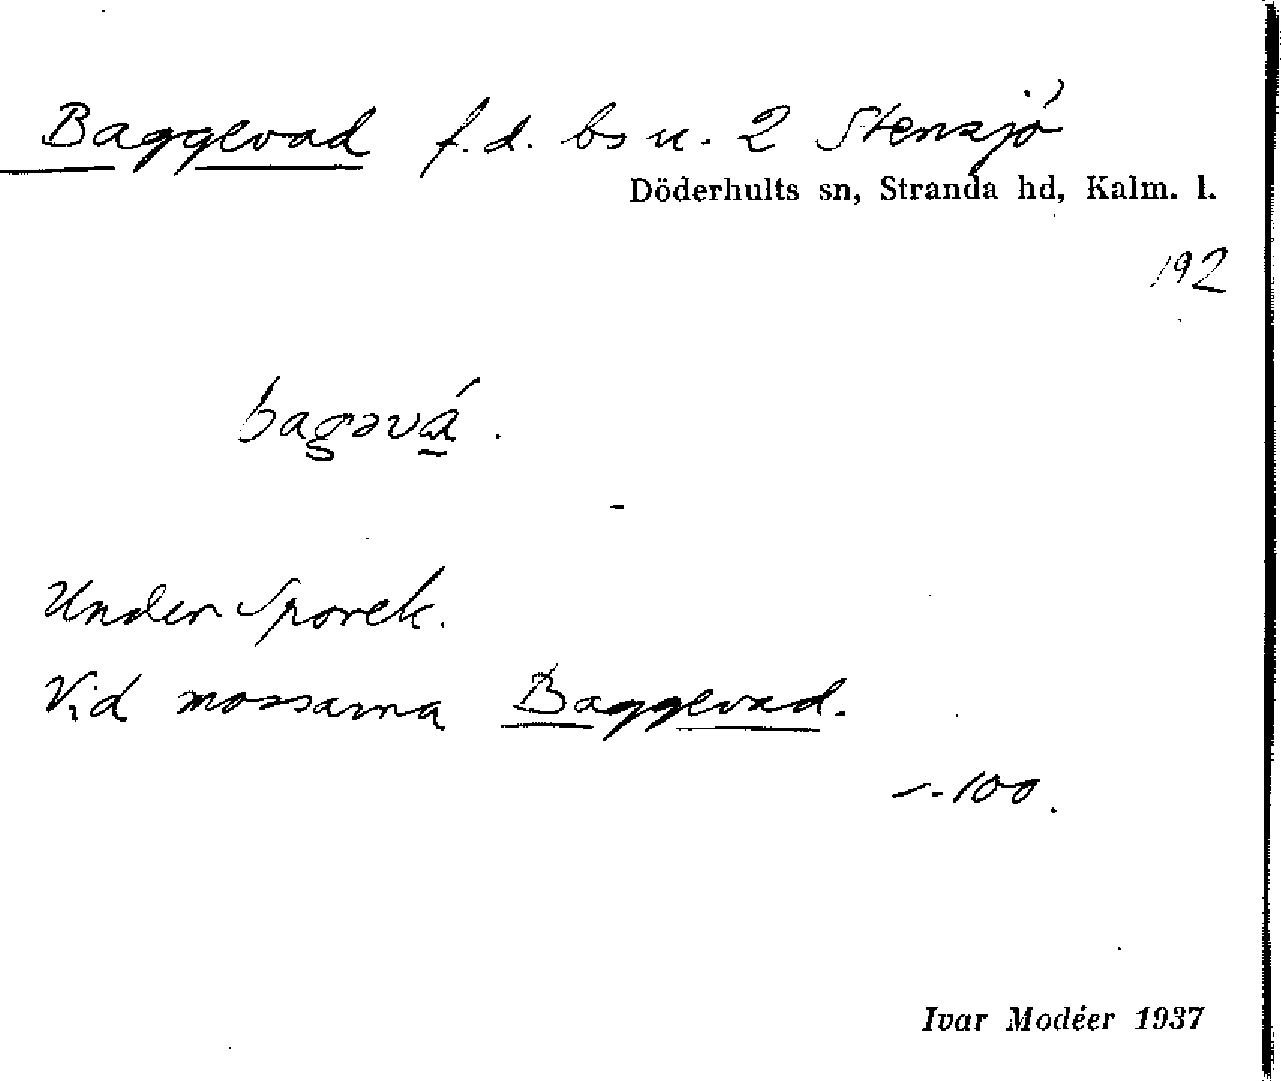 Baggevad f.d. bs u. 2 Stensjö
Döderhults sn, Stranda hd, Kalm. l.
192
bagəvá.
Under Sporek.
Vid mossarna Baggevad.
100.
Ivar Modéer 1937